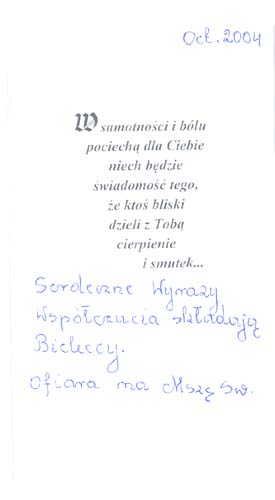 Oct. 2004
W samotności i bólu
pociechą dla Ciebie
niech będzie
świadomość tego,
że ktoś bliski
dzieli z Tobą
cierpienie
i smutek...
Serdeczne Wyrazy
Współczucia składają
Bieleccy.
Ofiara na Mszę św.